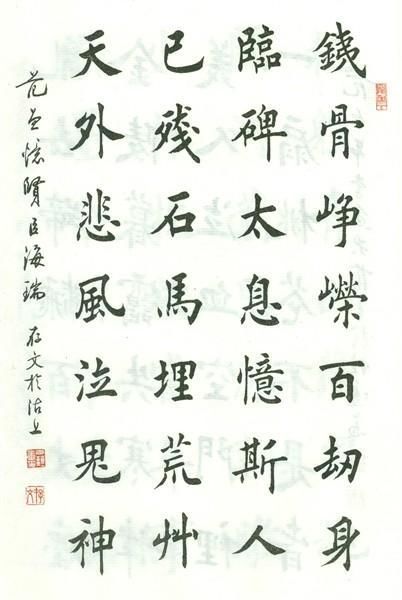 銕骨崢嶸百劫身
臨碑太息憶斯人
已殘石馬埋荒艸
天外悲風泣鬼神
范憶賢臣海瑞 存文於沽上